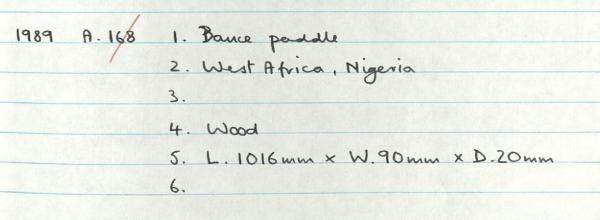 1989 A.168 1. Dance paddle
2. West Africa, Nigeria
3.
4. Wood
5. L.1016mm x W.90mm x D.20mm
6.